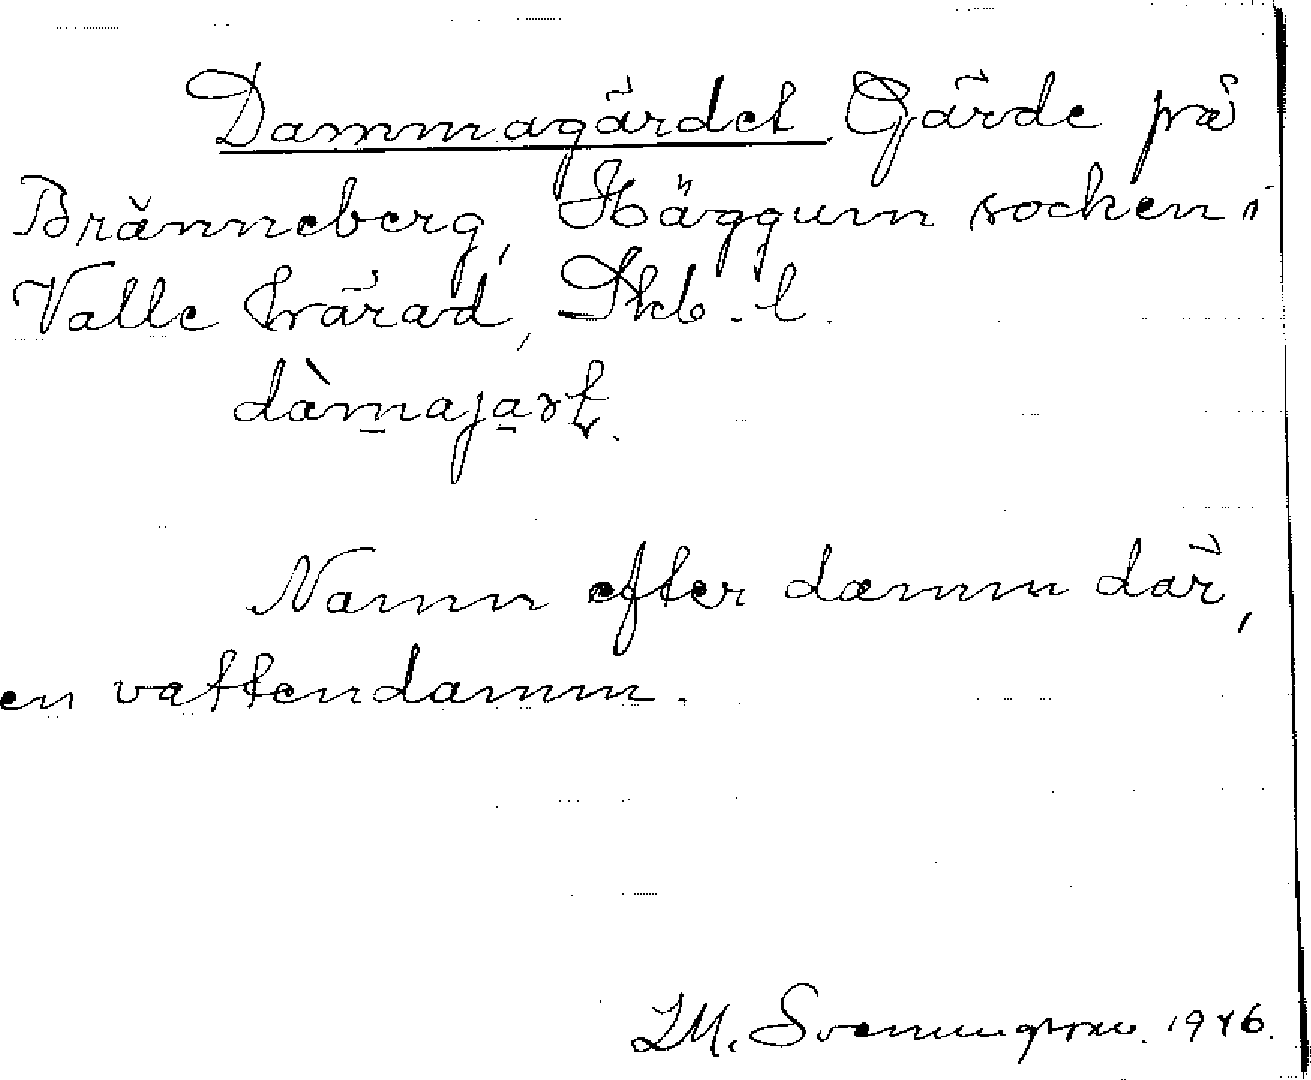 Dammagärdet Gärde på
Bränneberg, Häggum socken i
Valle härad, Skb. l.
dàm̲aja̲rt.
Namn efter damm där,
en vattendamm.
I.M. Svenungsson. 1946.